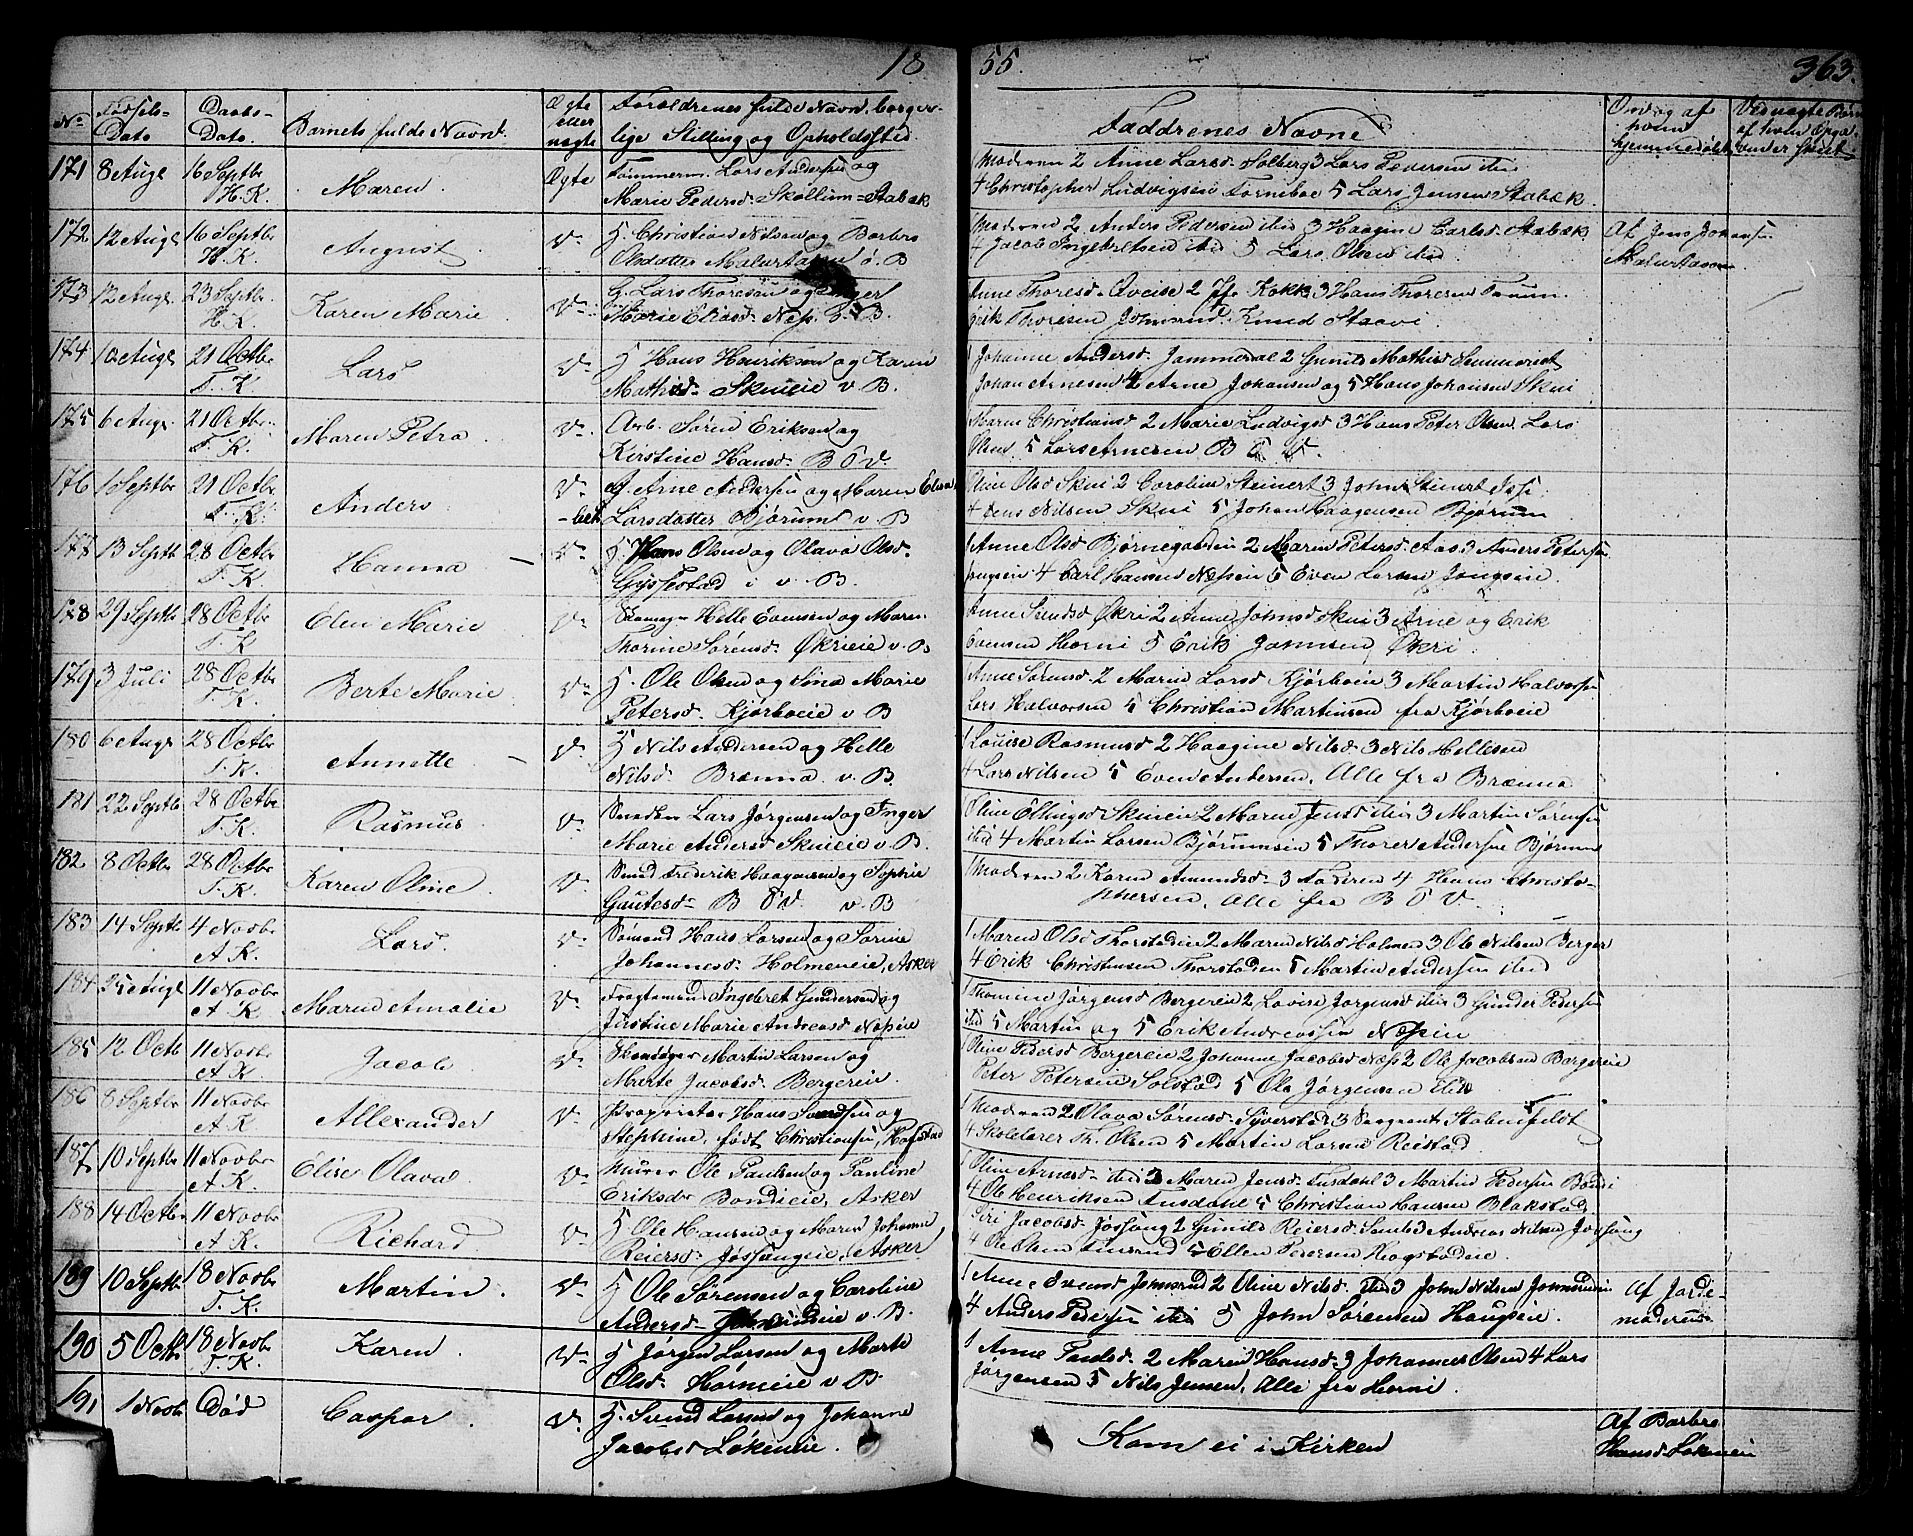 18 55. 363.
No Fødsels-Dato Daabs-Dato. Barnets fulde Navn. Ægte eller uægte Forældrenes fulde Navn, borger-lige Stilling og Opholdssted Faddrenes Navne Om og af hvem hjemmedøbt Ved uægte Børn af hvem
171 8 Augt 16 Septbr H. K. Maren. Ægte Tømmerm. Lars Andersen og
Marie Pedersd. Skollum-Stabæk
Moderen 2 Anne Larsd. Solberg 3 Lars Pedersen ibid
4 Christopher Ludvigsen Forneboe 5 Lars Jensen Stabæk.
172 12 Augt 16 Septbr H. K. August. Do H. Christian Nilsen og Barbro
Olsdatter ø. B
Moderen 2 Anders Pedersen ibid 3 Haagine Carlsd. Stabæk
4 Jacob Ingebretsen ibid 5 Lars Olsen ibid.
Af Jens Johansen
173 12 Augt 23 Septbr. H. K. Karen Marie Do G. Lars Thoresen og Inger
Marie Eliasd. Næs. ø. B.
Anne Thoresd. 2 Kokk 3 Hans Thoresen
Erik Thoresen Knud Staavi.
174 10 Augt 21 Octbr T. K. Lars Do H Hans Henriksen og Karen
Mathisd. Skuieie v. B.
1 Johanne Andersd. Jammerdal 2 Gunild Mathisd
Johan Arnesen 4 Arne Johansen og 5 Hans Johansen Skui
175 6 Augt 21 Octbr. T. K. Maren Petra Do Arb. Søren Eriksen og
Kirstine Hansd. B Ø V.
Maren Christiansd 2 Marie Ludvigsd 3 Hans Peter Olsen. Lars
Olsen 5 Lars Arnesen B Ø V.
176 1 Septbr 21 Octbr. T. K. Anders. Do G. Arne Andersen og Maren Elisa
-beth Larsdatter Bjørum v. B
Oline Olsd Skui 2 Caroline Steinert 3 John Steinert
4 Jens Nilsen Skui 5 Johan Haagensen Bjørum
177 13 Septb 28 Octbr T. K. Hanna Do H. Hans Olsen og Olava Olsd.
Gjissestad i v. B.
1 Anne Olsd Bjørnegarden 2 Maren Petersd. Aas 3 Anders Petersen
4 Carl Hansen Næsseie 5 Even Larsen
178 29 Septb 28 Octbr T. K Elen Marie Do Helle Evensen og Maren
Thorine Sørensd. Økrieie v. B
Anne Økri 2 Anne Johnsd Skui 3 Arne og Erik
Evensen Horni 5 Erik Jonsen Økri.
179 3 Juli 28 Octbr T. K. Berte Marie Do H. Ole Olsen og Sina Marie
Petersd. Kjørboeie v B
Anne Sørensd. 2 Maren Larsd Kjørboeie 3 Martin Halvorsen
Lars Halvorsen 5 Christian Martinsen fra Kjørboeie
180 6 Augt 28 Octbr T. K. Annette Do H Nils Andersen og Helle
Nilsd. Brænna. v. B.
1 Louise Rasmusd 2 Haagine Nilsd. 3 Nils Hellesen
4 Lars Nilsen 5 Even Andersen. Alle fra Brænna
181 22 Septb 28 Octbr T. K. Rasmus Do Lars Jørgensen og Inger
Marie Andersd Skuieie v. B.
1 Oline Ellingsd Skuieie 2 Maren Jensd ibid 3 Martin Sørensen
ibid 4 Martin Larsen Bjørumseie 5 Thorer Andersen Bjørum
182 8 Octbr 28 Octbr T. K. Karen Oline. Do Smed Frederik Haagensen og Sophie
Gautersd. B Ø V. v. B
1 Moderen 2 Karen Amundsd. 3 Faderen 4 Hans Christo-
phersen. Alle fra B Ø V.
183 14 Septb 4 Novbr A. K. Lars. Do Sømand Hans Larsen og Sørine
Johannesd. Holmeneie, Asker
1 Maren Olsd Thorstadeie 2 Maren Nilsd Holmen 3 Ole Nilsen Berger
4 Erik Christensen Thorstaden 5 Martin Andersen ibid
184 25 Augt 11 Novbr A. K Maren Amalie Do Fragtemand Ingebret Gundersen og
Kirstine Marie Andreasd Næseie
1 Thomine Jørgensd Bergereie 2 Lovise Jørgensd ibid 3 Gunder Pedersen
ibid 5 Martin og 5 Erik Andreassen Næseie
185 12 Octb 11 Novbr A. K Jacob Do Martin Larsen og
Marte Jacobsd. Bergereie.
1 Oline Pedersd Bergereie 2 Johanne Jacobsd Næs 2 Ole Jacobsen Bergereie
Peter Petersen Solstad 5 Ole Jørgensen ibid
186 8 Septbr 11 Novbr A. K Allexander Do Proprietær Hans Svendsen og
Stephine, født Christiansen, Hofstad
1 Moderen 2 Olava Sørensd. Syverstad 3 Sergeant Stabenfeldt
4 Skolelærer Th. Olsen 5 Martin Larsen Reistad.
187 10 Septbr 11 Novbr A. K. Elise Olava Do Murer Ole Paulsen og Pauline
Eriksdr Bondieie, Asker
1 Oline Arnesd. ibid 2 Maren Jensd. Tusdahl 3 Martin Pedersen Bondi
4 Ole Henriksen Tusdahl 5 Christian Hansen Blakstad
188 14 Octbr 11 Novbr A. K. Richard Do H Ole Hansen og Maren Johanne
Reiersd. Jøssongeie, Asker
Siri Jacobsd. Jøssong 2 Gunild Reiersd. Andreas Nilsen Jøssong
4 Ole Olsen 5 Ellen Pedersen Hogstadeie.
189 10 Septbr 18 Novbr T. K. Martin. Do H Ole Sørensen og Caroline
Andersd. v. B.
1 Anne Evensd Johnsrud 2 Oline Nilsd. ibid 3 John Nilsen Johnsrudeie
4 Anders Pedersen ibid 5 John Sørensen Haugseie.
Af Jorde-
moderen
190 5 Octb 18 Novbr T. K. Karen. Do H Jørgen Larsen og Marte
Olsd. Horneie v B
1 Anne Paulsd. 2 Maren Hansd. 3 Johannes Olsen 4 Lars
Jørgensen 5 Nils Jensen. Alle fra Horni.
191 1 Novb Død Caspar. Do H. Svend Larsen og Johanne
Jacobsd Løkeneie.
Kom ei i Kirken
Af Barbro
Hansd. Løkeneie